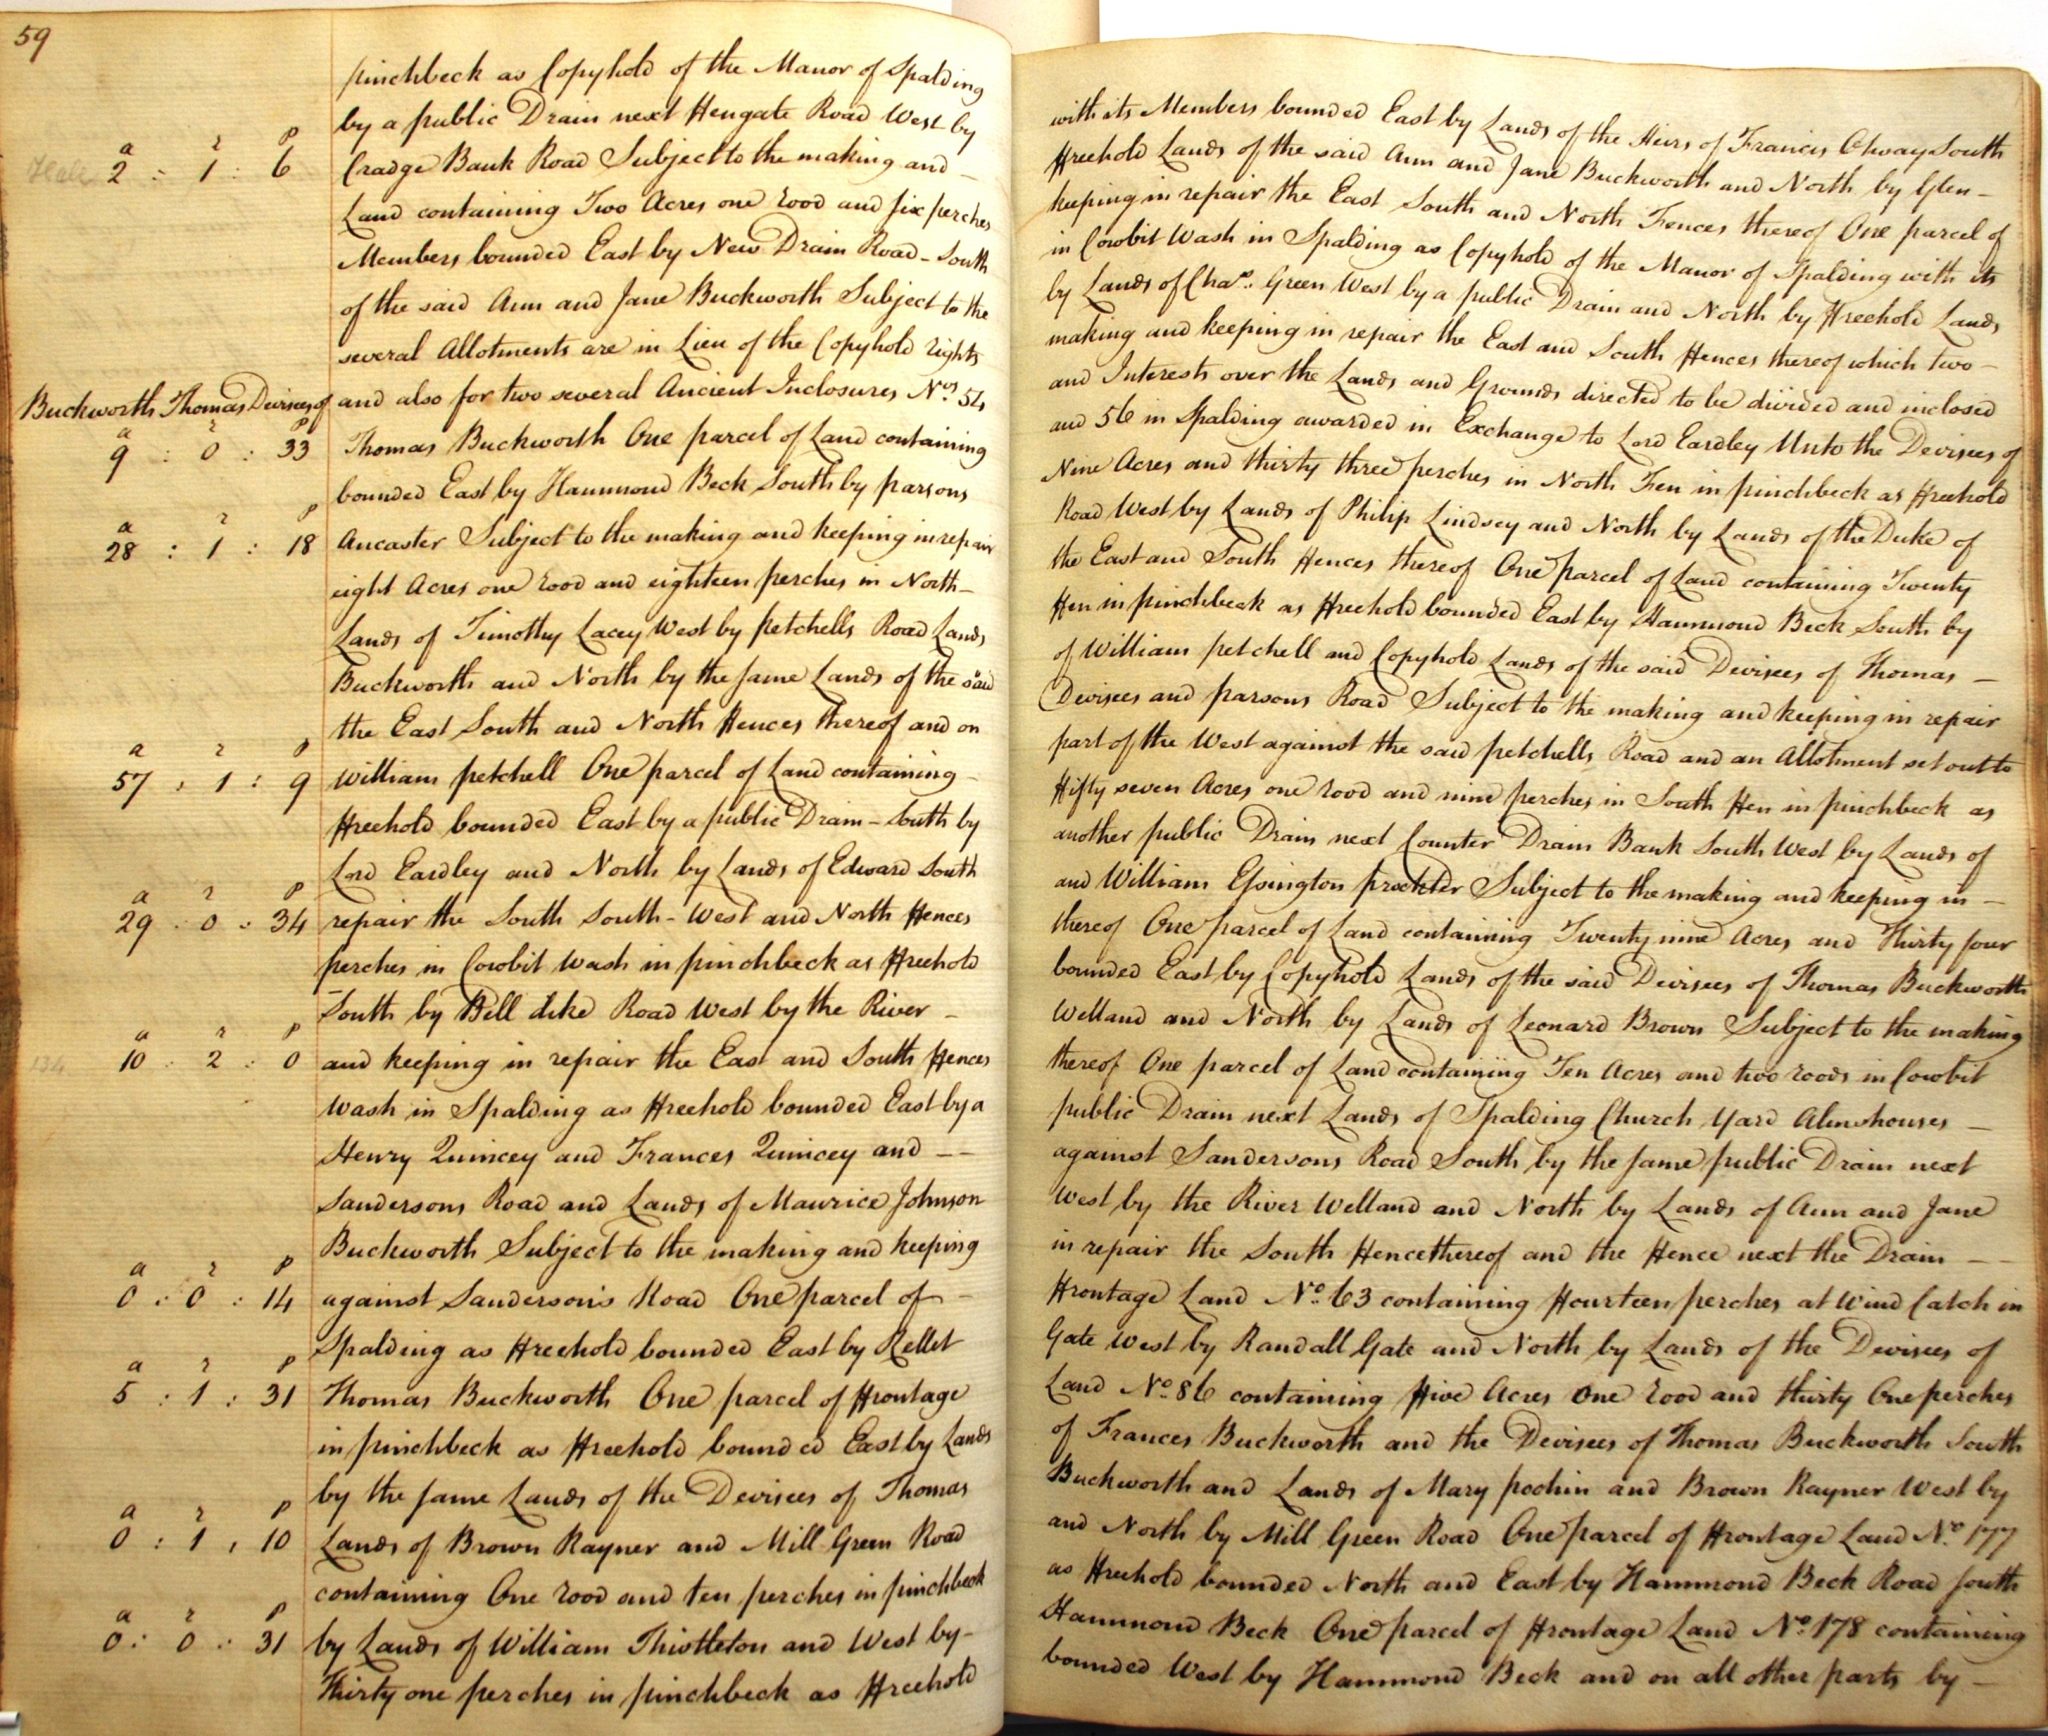 59
pinchbeck as Copyhold of the Manor of Spalding with its Members bounded East by Lands of the Heirs of Francis Otway South
by a public Drain next Hengate Road West by Freehold Lands of the said Ann and Jane Buckworth and North by Glen-
a r p
2 : 1 : 6 Cradge Bank Road Subject to the making and - keeping in repair the East South and North Fences thereof One parcel of
Land containing Two Acres one rood and six perches in Cowbit Wash in Spalding as Copyhold of the Manor of Spalding with its
Members bounded East by New Drain Road - South by Lands of Chas. Green West by a public Drain and North by Freehold Lands
of the said Ann and Jane Buckworth Subject to the making and keeping in repair the East and South Fences thereof which two -
several Allotments are in Lieu of the Copyhold rights and Interests over the Lands and Grounds directed to be divided and inclosed
Buckworth Thomas Devisees of and also for two several Ancient Inclosures Nos. 54 and 56 in Spalding awarded in Exchange to Lord Eardley Unto the Devisees of
a r p
9 : 0 : 33 Thomas Buckworth One parcel of Land containing Nine Acres and thirty three perches in North Fen in pinchbeck as Freehold
bounded East by Hammond Beck South by parsons Road West by Lands of Philip Lindsey and North by Lands of the Duke of
a r p
28 : 1 : 18 Ancaster Subject to the making and keeping in repair the East and South Fences thereof One parcel of Land containing Twenty
eight Acres one rood and eighteen perches in North- Fen in pinchbeck as Freehold bounded East by Hammond Beck South by
Lands of Timothy Lacey West by petchells Road Lands of William petchell and Copyhold Lands of the said Devisees of Thomas -
Buckworth and North by the same Lands of the said Devisees and parsons Road Subject to the making and keeping in repair
the East South and North Fences thereof and on part of the West against the said petchells Road and an Allotment set out to
a r p
57 : 1 : 9 William petchell One parcel of Land containing - Fifty seven Acres one rood and nine perches in South Fen in pinchbeck as
Freehold bounded East by a public Drain - South by another public Drain next Counter Drain Bank South West by Lands of
Lord Eardley and North by Lands of Edward South and William Essington prockter Subject to the making and keeping in -
a r p
29 : 0 : 34 repair the South South-West and North Fences thereof One parcel of Land containing Twenty nine Acres and Thirty four
perches in Cowbit Wash in pinchbeck as Freehold bounded East by Copyhold Lands of the said Devisees of Thomas Buckworth
South by Bell dike Road West by the River - Welland and North by Lands of Leonard Brown Subject to the making
a r p
134 10 : 2 : 0 and keeping in repair the East and South Fences thereof One parcel of Land containing Ten Acres and two roods in Cowbit
Wash in Spalding as Freehold bounded East by a public Drain next Lands of Spalding Church Yard Almshouses -
Henry Quincey and Frances Quincey and -- against Sandersons Road South by the same public Drain next
Sandersons Road and Lands of Maurice Johnson West by the River Welland and North by Lands of Ann and Jane
Buckworth Subject to the making and keeping in repair the South Fence thereof and the Fence next the Drain --
a r p
0 : 0 : 14 against Sanderson's Road One parcel of - Frontage Land No. 63 containing Fourteen perches at Wind Catch in
Spalding as Freehold bounded East by Rellet Gate West by Randall Gate and North by Lands of the Devisees of
a r p
5 : 1 : 31 Thomas Buckworth One parcel of Frontage Land No. 86 containing Five Acres One rood and thirty One perches
in pinchbeck as Freehold bounded East by Lands of Frances Buckworth and the Devisees of Thomas Buckworth South
by the same Lands of the Devisees of Thomas Buckworth and Lands of Mary pochin and Brown Rayner West by
a r p
0 : 1 : 10 Lands of Brown Rayner and Mill Green Road and North by Mill Green Road One parcel of Frontage Land No. 177
containing One rood and ten perches in pinchbeck as Freehold bounded North and East by Hammond Beck Road South
a r p
0 : 0 : 31 by Lands of William Thistleton and West by- Hammond Beck One parcel of Frontage Land No. 178 containing
Thirty one perches in pinchbeck as Freehold bounded West by Hammond Beck and on all other parts by -